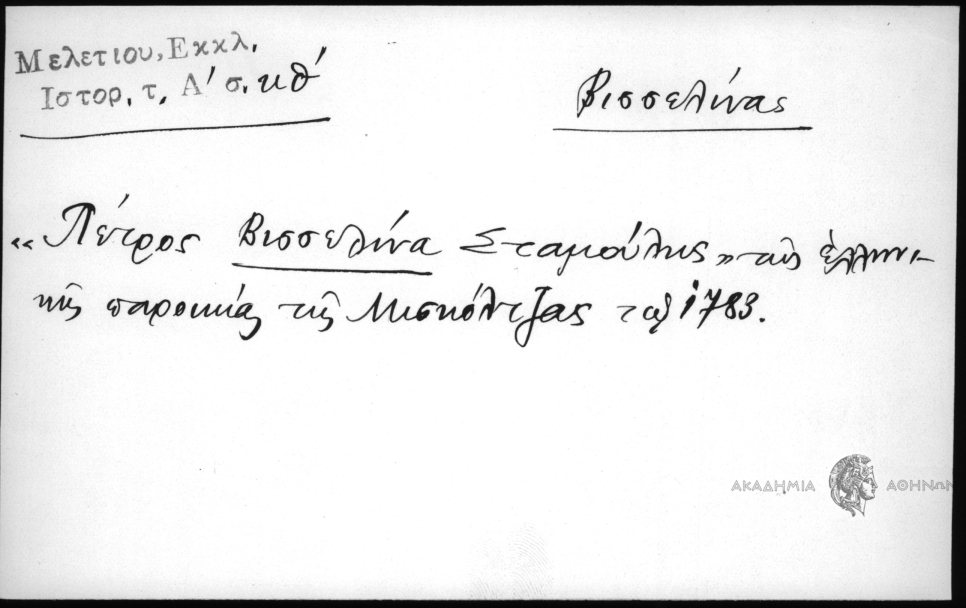 Μελετιου, Εκκλ.
Ιστορ. τ. Α' σ. κθ'
Βισσελίνας
"Πέτρος Βισσελίνα Σταμούλης" τῆς ἑλληνι-
κῆς παροικίας τῆς Μισκόλτζας τοῦ 1783.
ΑΚΑΔΗΜΙΑ ΑΘΗΝΩΝ